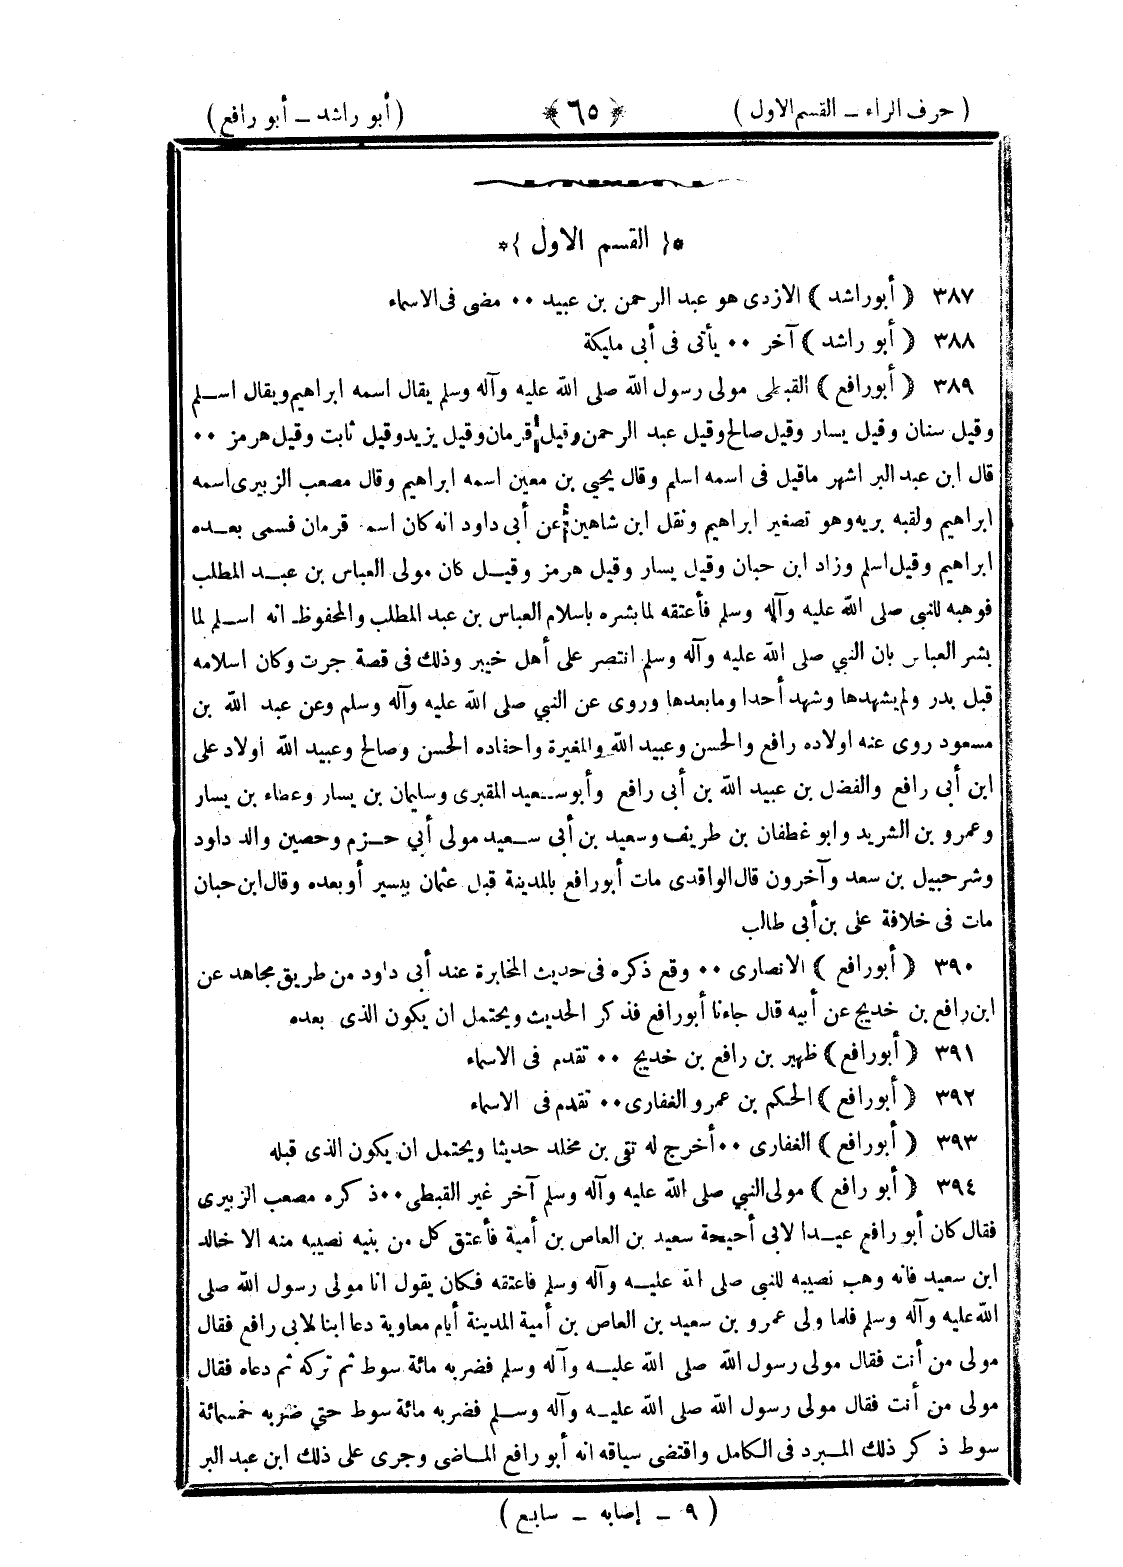 ( حرف الراء ــ القسم الاول ) ﴿ ٦٥ ﴾ ( أبو راشد ــ أبو رافع )
*{ القسم الاول }*
٣٨٧ ( أبو راشد ) الازدى هو عبد الرحمن بن عبيد ٠٠ مضى فى الاسماء
٣٨٨ ( أبو راشد ) آخر ٠٠ يأتى فى أبى مليكة
٣٨٩ ( أبو رافع ) القبطى مولى رسول الله صلى الله عليه وآله وسلم يقال اسمه ابراهيم ويقال اسـلم
وقيل سنان وقيل يسار وقيل صالح وقيل عبد الرحمن وقيل قرمان وقيل يزيد وقيل ثابت وقيل هرمز ٠٠
قال ابن عبد البر اشهر ماقيل فى اسمه اسلم وقال يحيى بن معين اسمه ابراهيم وقال مصعب الزبيرى اسمه
ابراهيم ولقبه بريه وهو تصغير ابراهيم ونقل ابن شاهين عن أبى داود انه كان اسمه قرمان فسمى بعـده
ابراهيم وقيل اسلم وزاد ابن حبان وقيل يسار وقيل هرمز وقيـل كان مولى العباس بن عبـد المطلب
فوهبه للنبى صلى الله عليه وآله وسلم فأعتقه لما بشره باسلام العباس بن عبد المطلب والمحفوظ انه اسـلم لما
بشر العباس بان النبي صلى الله عليه وآله وسلم انتصر على أهل خيبر وذلك فى قصة جرت وكان اسلامه
قبل بدر ولم يشهدها وشهد أحدا ومابعدها وروى عن النبي صلى الله عليه وآله وسلم وعن عبد الله بن
مسعود روى عنه اولاده رافع والحسن وعبيد الله والمغيرة واحفاده الحسن وصالح وعبيد الله اولاد على
ابن أبى رافع والفضل بن عبيد الله بن أبى رافع وأبوسـعيد المقبرى وسليمان بن يسار وعطاء بن يسار
وعمرو بن الشريد وابو غطفان بن طريف وسعيد بن أبى سـعيد مولى أبي حـزم وحصين والد داود
وشرحبيل بن سعد وآخرون قال الواقدى مات أبورافع بالمدينة قبل عثمان بيسير أو بعده وقال ابن حبان
مات فى خلافة على بن أبى طالب
٣٩٠ ( أبورافع ) الانصارى ٠٠ وقع ذكره فى حديث المخابرة عند أبى داود من طريق مجاهد عن
ابن رافع بن خديج عن أبيه قال جاءنا أبورافع فذكر الحديث ويحتمل ان يكون الذى بعده
٣٩١ ( أبورافع ) ظهير بن رافع بن خديج ٠٠ تقدم فى الاسماء
٣٩٢ ( أبورافع ) الحكم بن عمرو الغفارى ٠٠ تقدم فى الاسماء
٣٩٣ ( أبورافع ) الغفارى ٠٠ أخرج له تقى بن مخلد حديثا ويحتمل ان يكون الذى قبله
٣٩٤ ( أبو رافع ) مولى النبي صلى الله عليه وآله وسلم آخر غير القبطى ٠٠ ذكره مصعب الزبيرى
فقال كان أبو رافع عبـدا لابى أحيحة سعيد بن العاص بن أمية فأعتق كل من بنيه نصيبه منه الا خالد
ابن سعيد فانه وهب نصيبه للنبى صلى الله عليـه وآله وسلم فاعتقه فكان يقول انا مولى رسول الله صلى
الله عليه وآله وسلم فلما ولى عمرو بن سعيد بن العاص بن أمية المدينة أيام معاوية دعا ابنا لابى رافع فقال
مولى من أنت فقال مولى رسول الله صلى الله عليـه وآله وسلم فضربه مائة سوط ثم تركه ثم دعاه فقال
مولى من أنت فقال مولى رسول الله صلى الله عليـه وآله وسـلم فضربه مائة سوط حتي ضربه خمسمائة
سوط ذكر ذلك المـبرد فى الكامل واقتضى سياقه انه أبو رافع المـاضى وجرى على ذلك ابن عبد البر
( ٩ ــ إصابه ــ سابع )